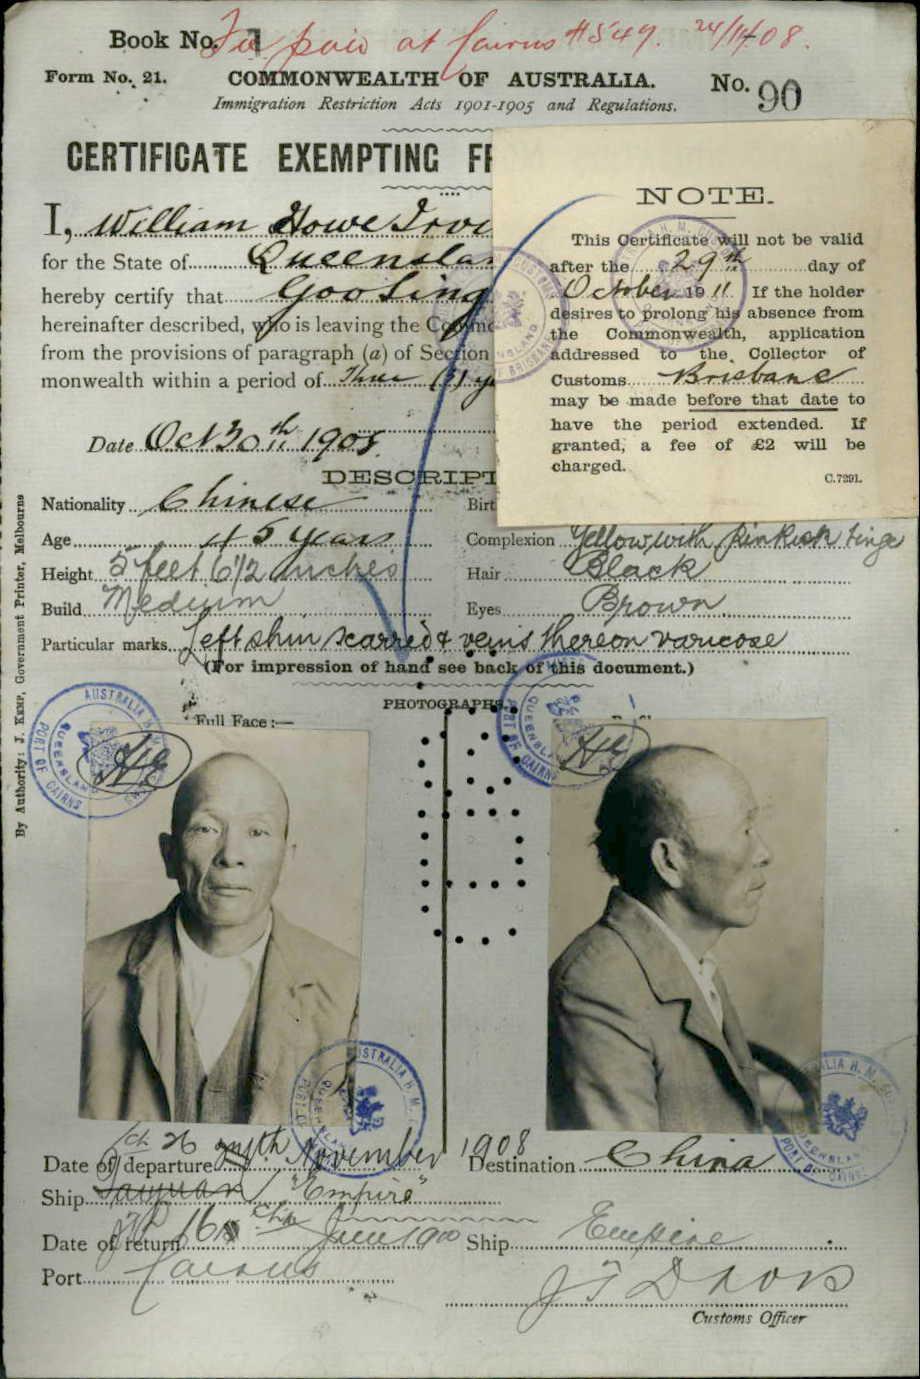 Book No. 1 Fee paid at Cairns #549. 24/11/08.
Form No. 21. COMMONWEALTH OF AUSTRALIA. No. 90
Immigration Restriction Acts 1901-1905 and Regulations.
CERTIFICATE EXEMPTING FR
I, William Howe Irvi
for the State of Queenslan
hereby certify that Goo Sing
hereinafter described, who is leaving the Comm
from the provisions of paragraph (a) of Section
monwealth within a period of Three (3) y
Date Oct 30th 1908.
NOTE.
This Certificate will not be valid
after the 29th day of
October 1911 If the holder
desires to prolong his absence from
the Commonwealth, application
addressed to the Collector of
Customs Brisbane
may be made before that date to
have the period extended. If
granted, a fee of £2 will be
charged.
C.7291.
DESCRIPT
Nationality Chinese Birt
Age 45 Years Complexion Yellow with pinkish tinge
Height 5 feet 6 1/2 inches Hair Black
Build Medium Eyes Brown
Particular marks Left shin scarred & veins thereon varicose
(For impression of hand see back of this document.)
PHOTOGRAPHS.
Full Face :—
AUSTRALIA H.M.
QUEENSLAND
PORT OF CAIRNS
By Authority: J. KEMP, Government Printer, Melbourne
Date of departure 26 November 1908 Destination China
Ship Taiyuan "Empire"
Date of return 16 June Ship Empire
Port Cairns
Customs Officer